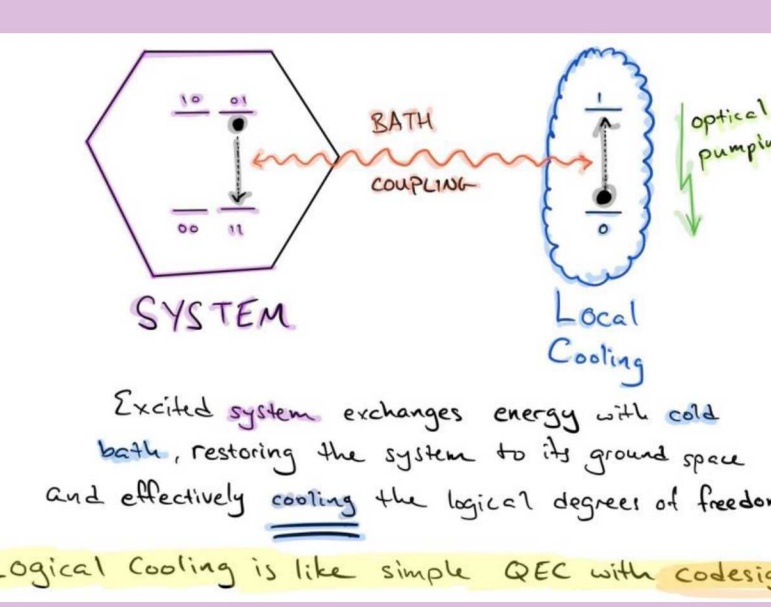 10 01
BATH
COUPLING
00 11
SYSTEM
1
0
optical
Local
Cooling
Excited system exchanges energy with cold
bath, restoring the system to its ground space
and effectively cooling the logical degrees of freedom
Logical Cooling is like simple QEC with